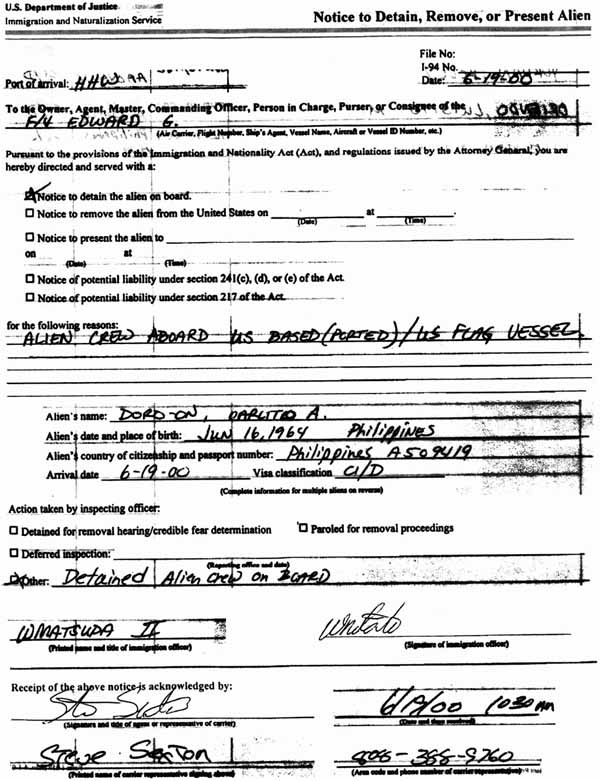 U.S. Department of Justice
Immigration and Naturalization Service
Notice to Detain, Remove, or Present Alien
File No:
I-94 No.
Port of arrival: HHW
Date: 6-19-00
To the Owner, Agent, Master, Commanding Officer, Person in Charge, Purser, or Consignee of the
F/V EDWARD G.
(Air Carrier, Flight Number, Ship's Agent, Vessel Name, Aircraft or Vessel ID Number, etc.)
Pursuant to the provisions of the Immigration and Nationality Act (Act), and regulations issued by the Attorney General, you are
hereby directed and served with a:
Notice to detain the alien on board.
Notice to remove the alien from the United States on at .
(Date) (Time)
Notice to present the alien to
on at
(Date) (Time)
Notice of potential liability under section 241(c), (d), or (e) of the Act.
Notice of potential liability under section 217 of the Act.
for the following reasons:
ALIEN CREW ABOARD US BASED (PORTED) / US FLAG VESSEL.
Alien's name: DORD-ON, A.
Alien's date and place of birth: JUN 16, 1964 Philippines
Alien's country of citizenship and passport number: Philippines A509419
Arrival date 6-19-00 Visa classification C1/D
(Complete information for multiple aliens on reverse)
Action taken by inspecting officer:
Detained for removal hearing/credible fear determination Paroled for removal proceedings
Deferred inspection:
(Reporting office and date)
Other: Detained Alien crew on BOARD
WMATSUDA II
(Printed name and title of immigration officer) (Signature of immigration officer)
Receipt of the above notice is acknowledged by:
6/19/00 1030 am
(Signature and title of agent or representative of carrier) (Date and time received)
Steve Sexton 808-
(Printed name of carrier representative signing above) (Area code and phone number of carrier representative)